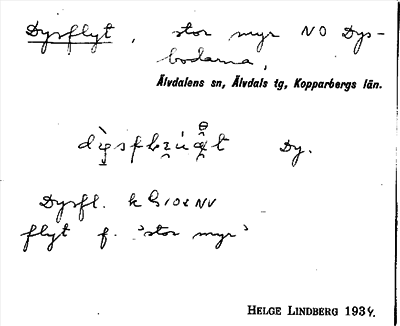 Dysflyt, stor myr NO Dys-
bodarna,
Älvdalens sn, Älvdals tg, Kopparbergs län.
Dy.
Dysfl. k
flyt f. 'stor myr'
HELGE LINDBERG 1934.